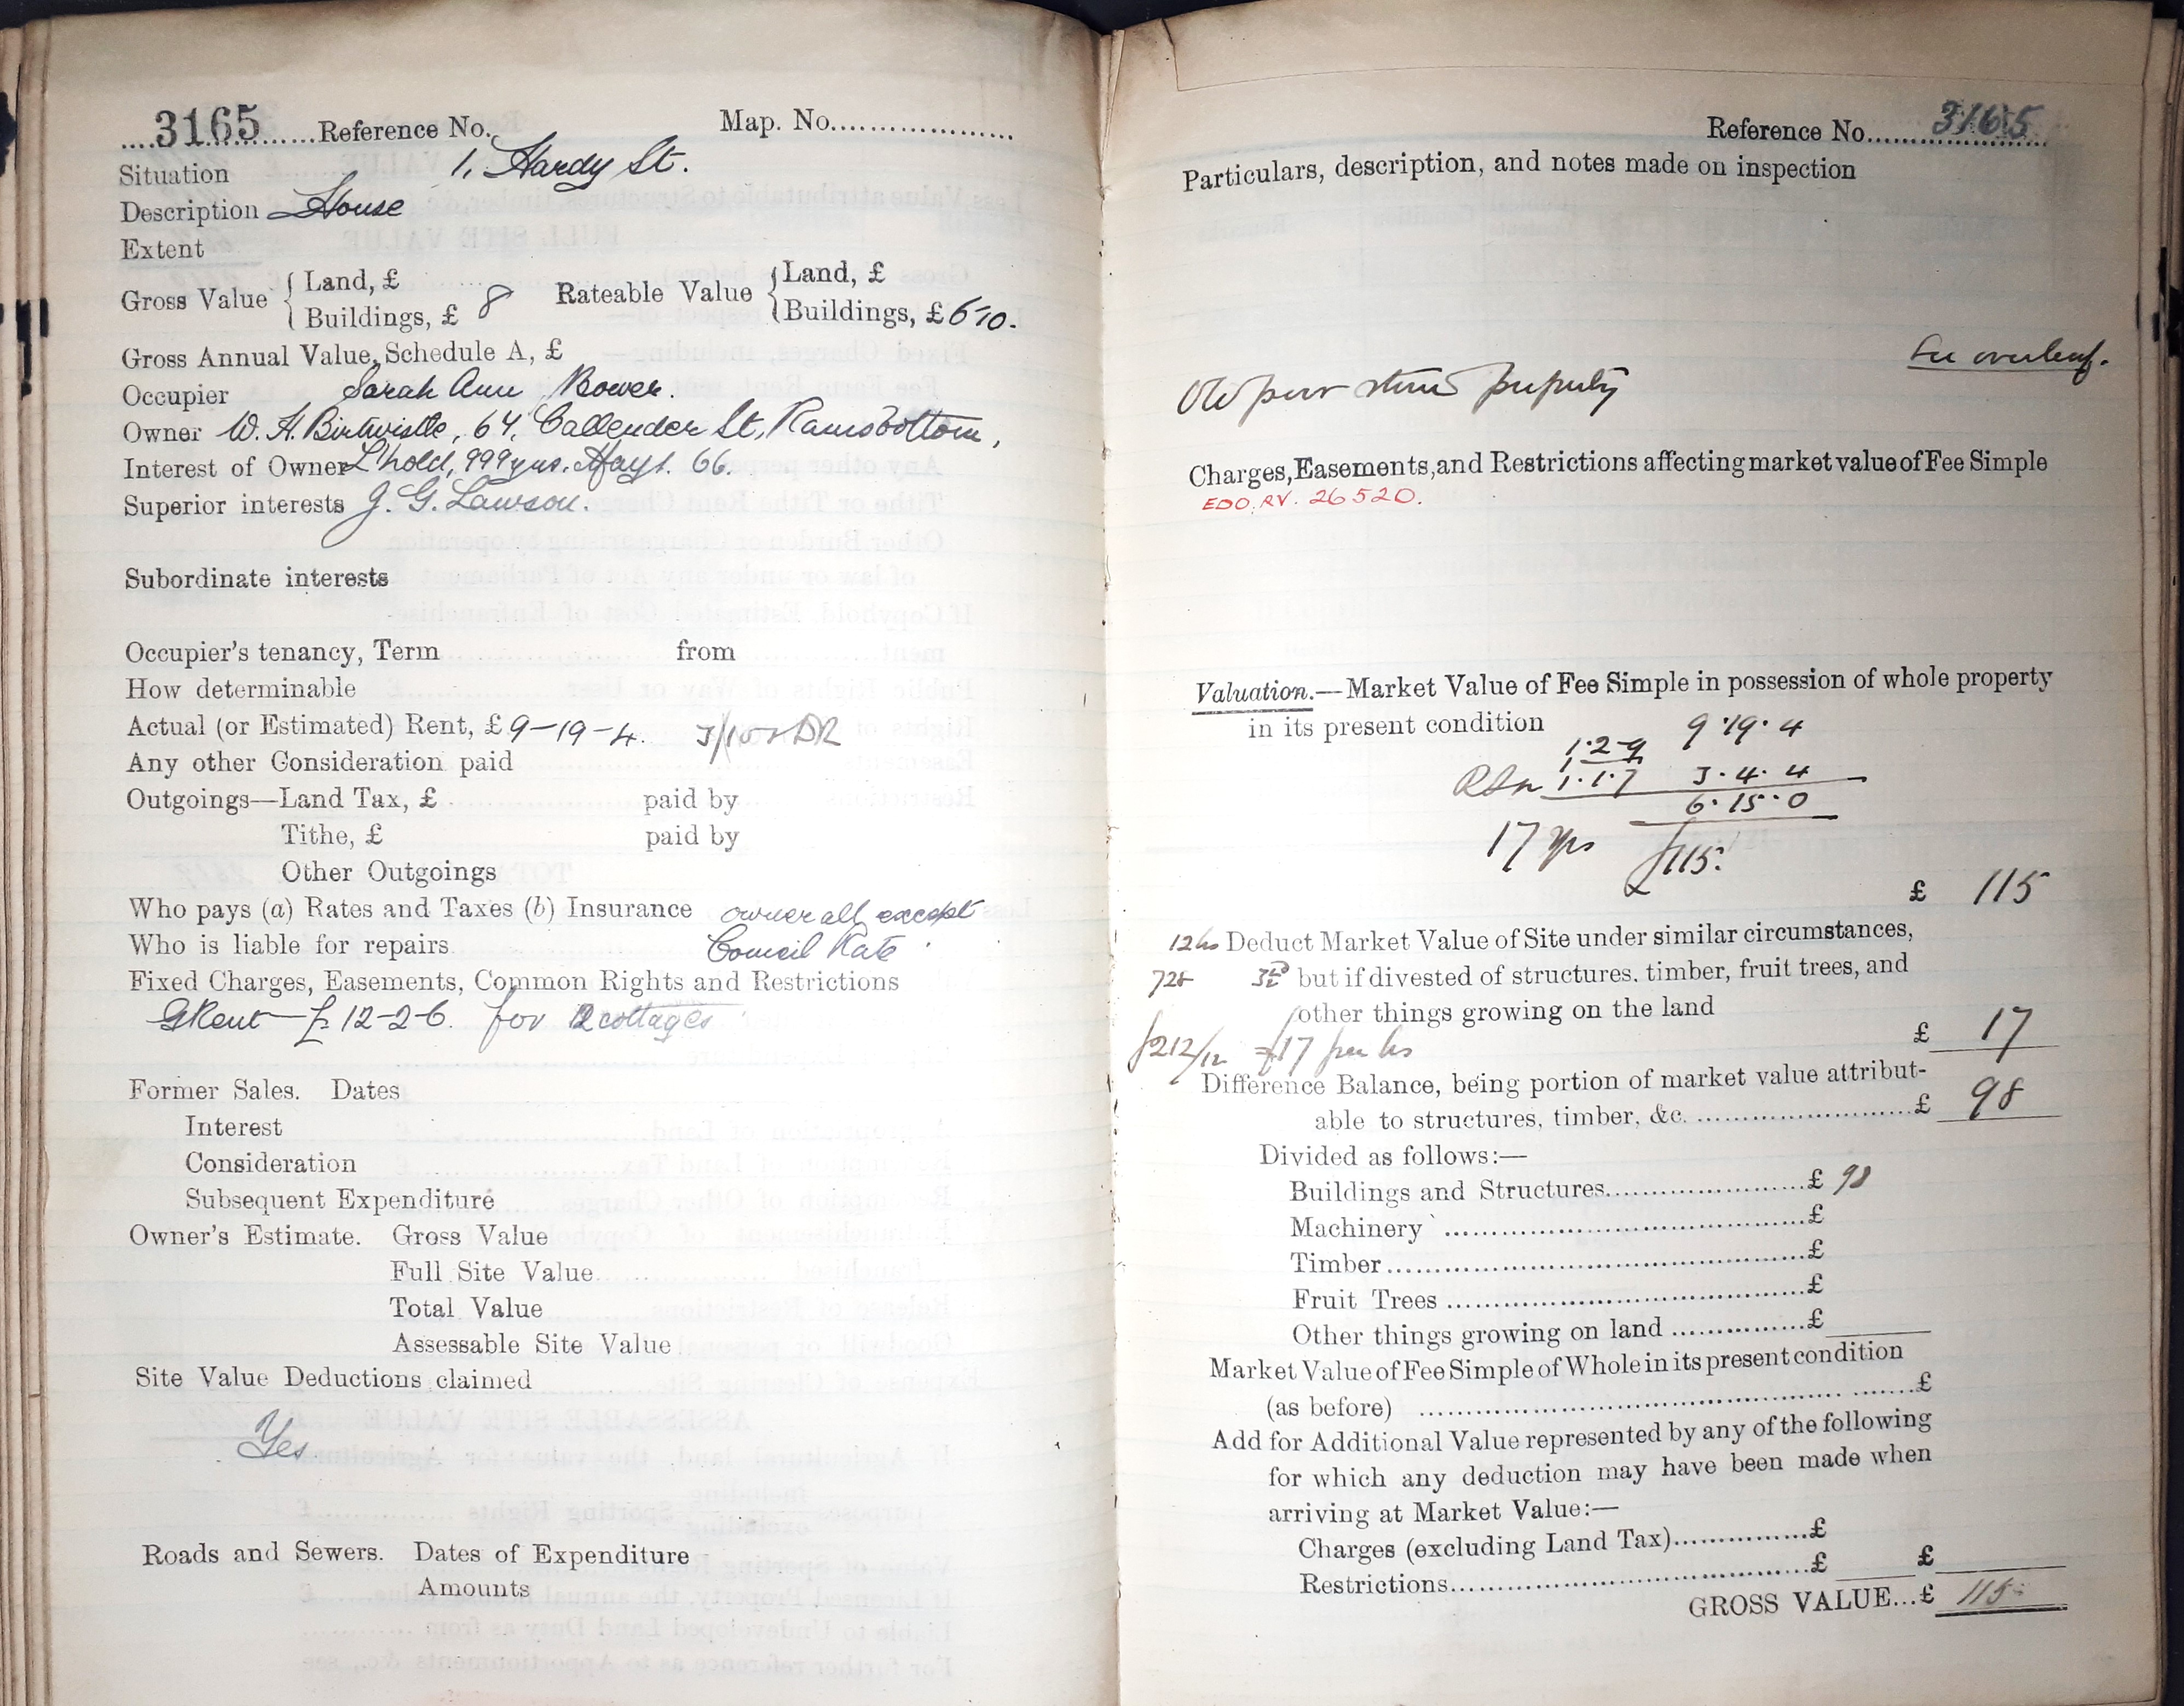 3165 Reference No. Map. No.
Situation 1, Hardy St.
Description House
Extent
Gross Value { Land, £ Rateable Value { Land, £
Buildings, £ 8 Buildings, £ 6-10-
Gross Annual Value, Schedule A, £
Occupier Sarah Ann Bower.
Owner W. H. Birtwistle, 64, Callender St, Ramsbottom,
Interest of Owner L'hold, 999 yrs. May 1. 66.
Superior interests J. G. Lawson.
Subordinate interests
Occupier's tenancy, Term from
How determinable
Actual (or Estimated) Rent, £ 9-19-4. 3/10
Any other Consideration paid
Outgoings—Land Tax, £ paid by
Tithe, £ paid by
Other Outgoings
Who pays (a) Rates and Taxes (b) Insurance owner all except
Who is liable for repairs Council Rate
Fixed Charges, Easements, Common Rights and Restrictions
GRent — £12-2-6. for 12 cottages
Former Sales. Dates
Interest
Consideration
Subsequent Expenditure
Owner's Estimate. Gross Value
Full Site Value
Total Value
Assessable Site Value
Site Value Deductions claimed
Yes
Roads and Sewers. Dates of Expenditure
Amounts
Reference No. 3165
Particulars, description, and notes made on inspection
See overleaf.
Old poor stone property
Charges, Easements, and Restrictions affecting market value of Fee Simple
EDO. RV. 26520.
Valuation.—Market Value of Fee Simple in possession of whole property
in its present condition 9.19.4
1.2.9
1.1.7 3.4.4
6.15.0
17 yrs £115.
£ 115
12 hs Deduct Market Value of Site under similar circumstances,
728 but if divested of structures, timber, fruit trees, and
other things growing on the land
£212/12 = £17 per hs £ 17
Difference Balance, being portion of market value attribut-
able to structures, timber, &c. £ 98
Divided as follows:—
Buildings and Structures £ 98
Machinery £
Timber £
Fruit Trees £
Other things growing on land £
Market Value of Fee Simple of Whole in its present condition
(as before) £
Add for Additional Value represented by any of the following
for which any deduction may have been made when
arriving at Market Value:—
Charges (excluding Land Tax) £
Restrictions £ £
GROSS VALUE...£ 115